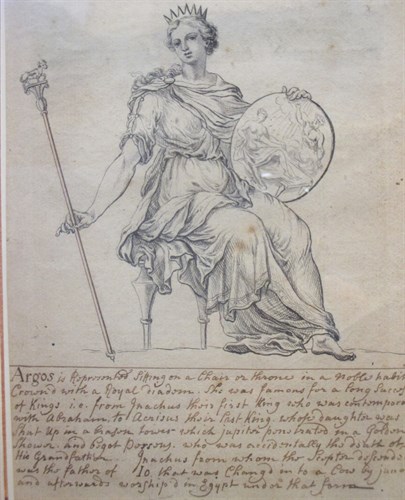 Argos is Represented sitting on a Chair or throne in a Noble habit
Crown'd with a Royal diadem. she was famous for a long Succes
of Kings i.e. from Inachus their first King who was contempora
with Abraham, to Acrisus their last King whose daughter was
shut Up in a brazen tower which Jupiter penetrated in a Golden
Shower and begot Perseus who was accidentally the death of
His Grandfather Inachus from whom the Scepter descends
was the father of IO, that was Chang'd in to a Cow by juno
and afterwards worship'd in Egypt under that form